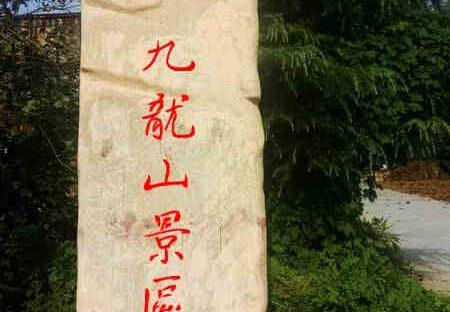 九龍山景區